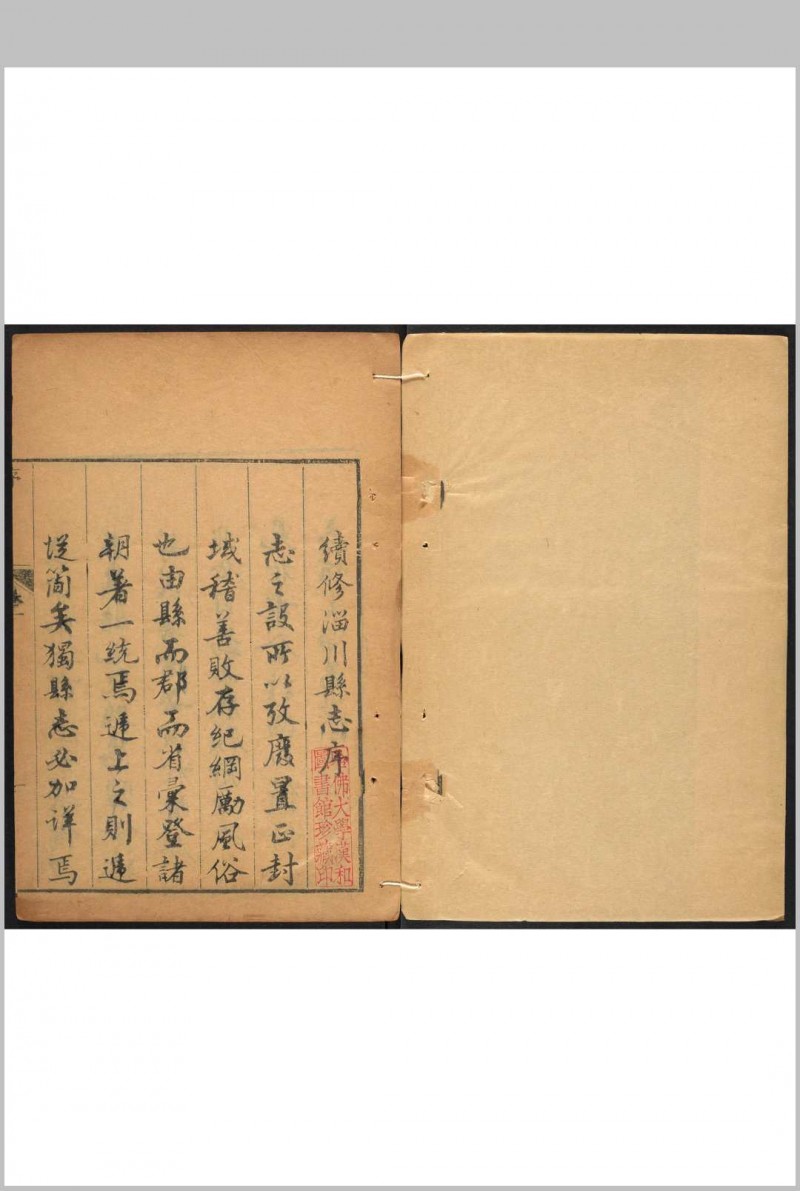 續修淄川縣志序
志之設所以攷廢置正封
域稽善敗存紀綱厲風俗
也由縣而郡而省彙登諸
朝著一統焉遞上之則遞
從簡矣獨縣志必加詳焉
哈佛大學漢和
圖書館珍藏印